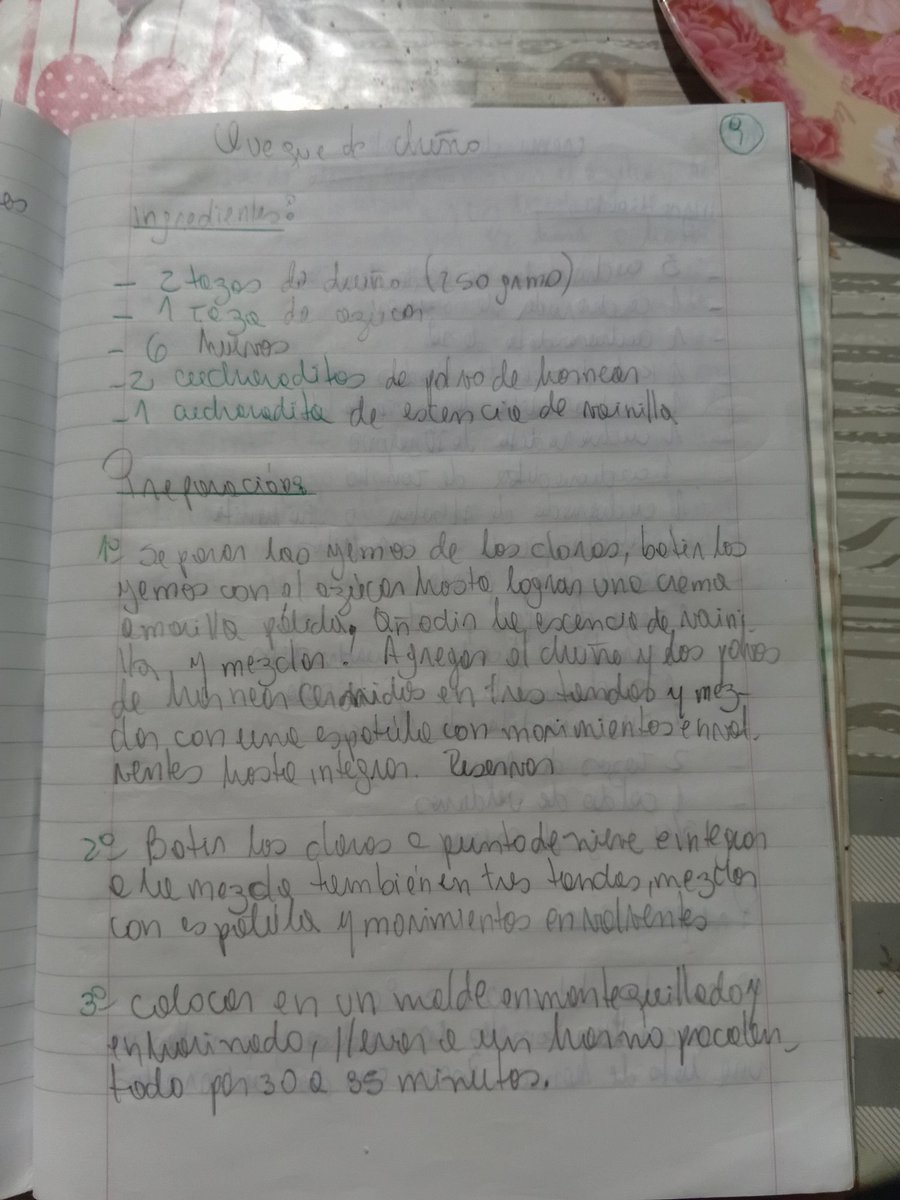 Queque de chuño
9
es
Ingredientes:
- 2 tazas de chuño (250 gramo)
- 1 taza de azúcar
- 6 huevos
- 2 cucharaditas de polvo de hornear
- 1 cucharadita de esencia de vainilla
Preparación:
1º Separar las yemas de los claras, batir las
yemas con el azúcar hasta lograr una crema
amarilla pálida. Añadir la escencia de vaini
lla, y mezclar. Agregar el chuño y los polvos
de hornear cernidos en tres tandas y mez-
clar, con una espátula con movimientos envol.
ventes hasta integrar. Reservar
2º Batir las claras a punto de nieve e integrar
a la mezcla tambien en tres tandas, mezclar
con espátula y movimientos envolventes
3º Colocar en un molde enmantequillado y
enharinado, llevar a un horno precalen_
tado por 30 a 35 minutos.